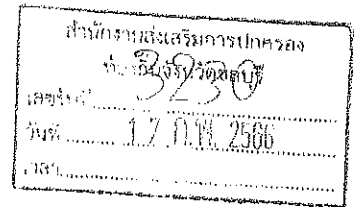 สำนักงานส่งเสริมการปกครอง
ท้องถิ่นจังหวัดชลบุรี
เลขรับที่ 3230
วันที่ 17 ก.พ. 2566
เวลา